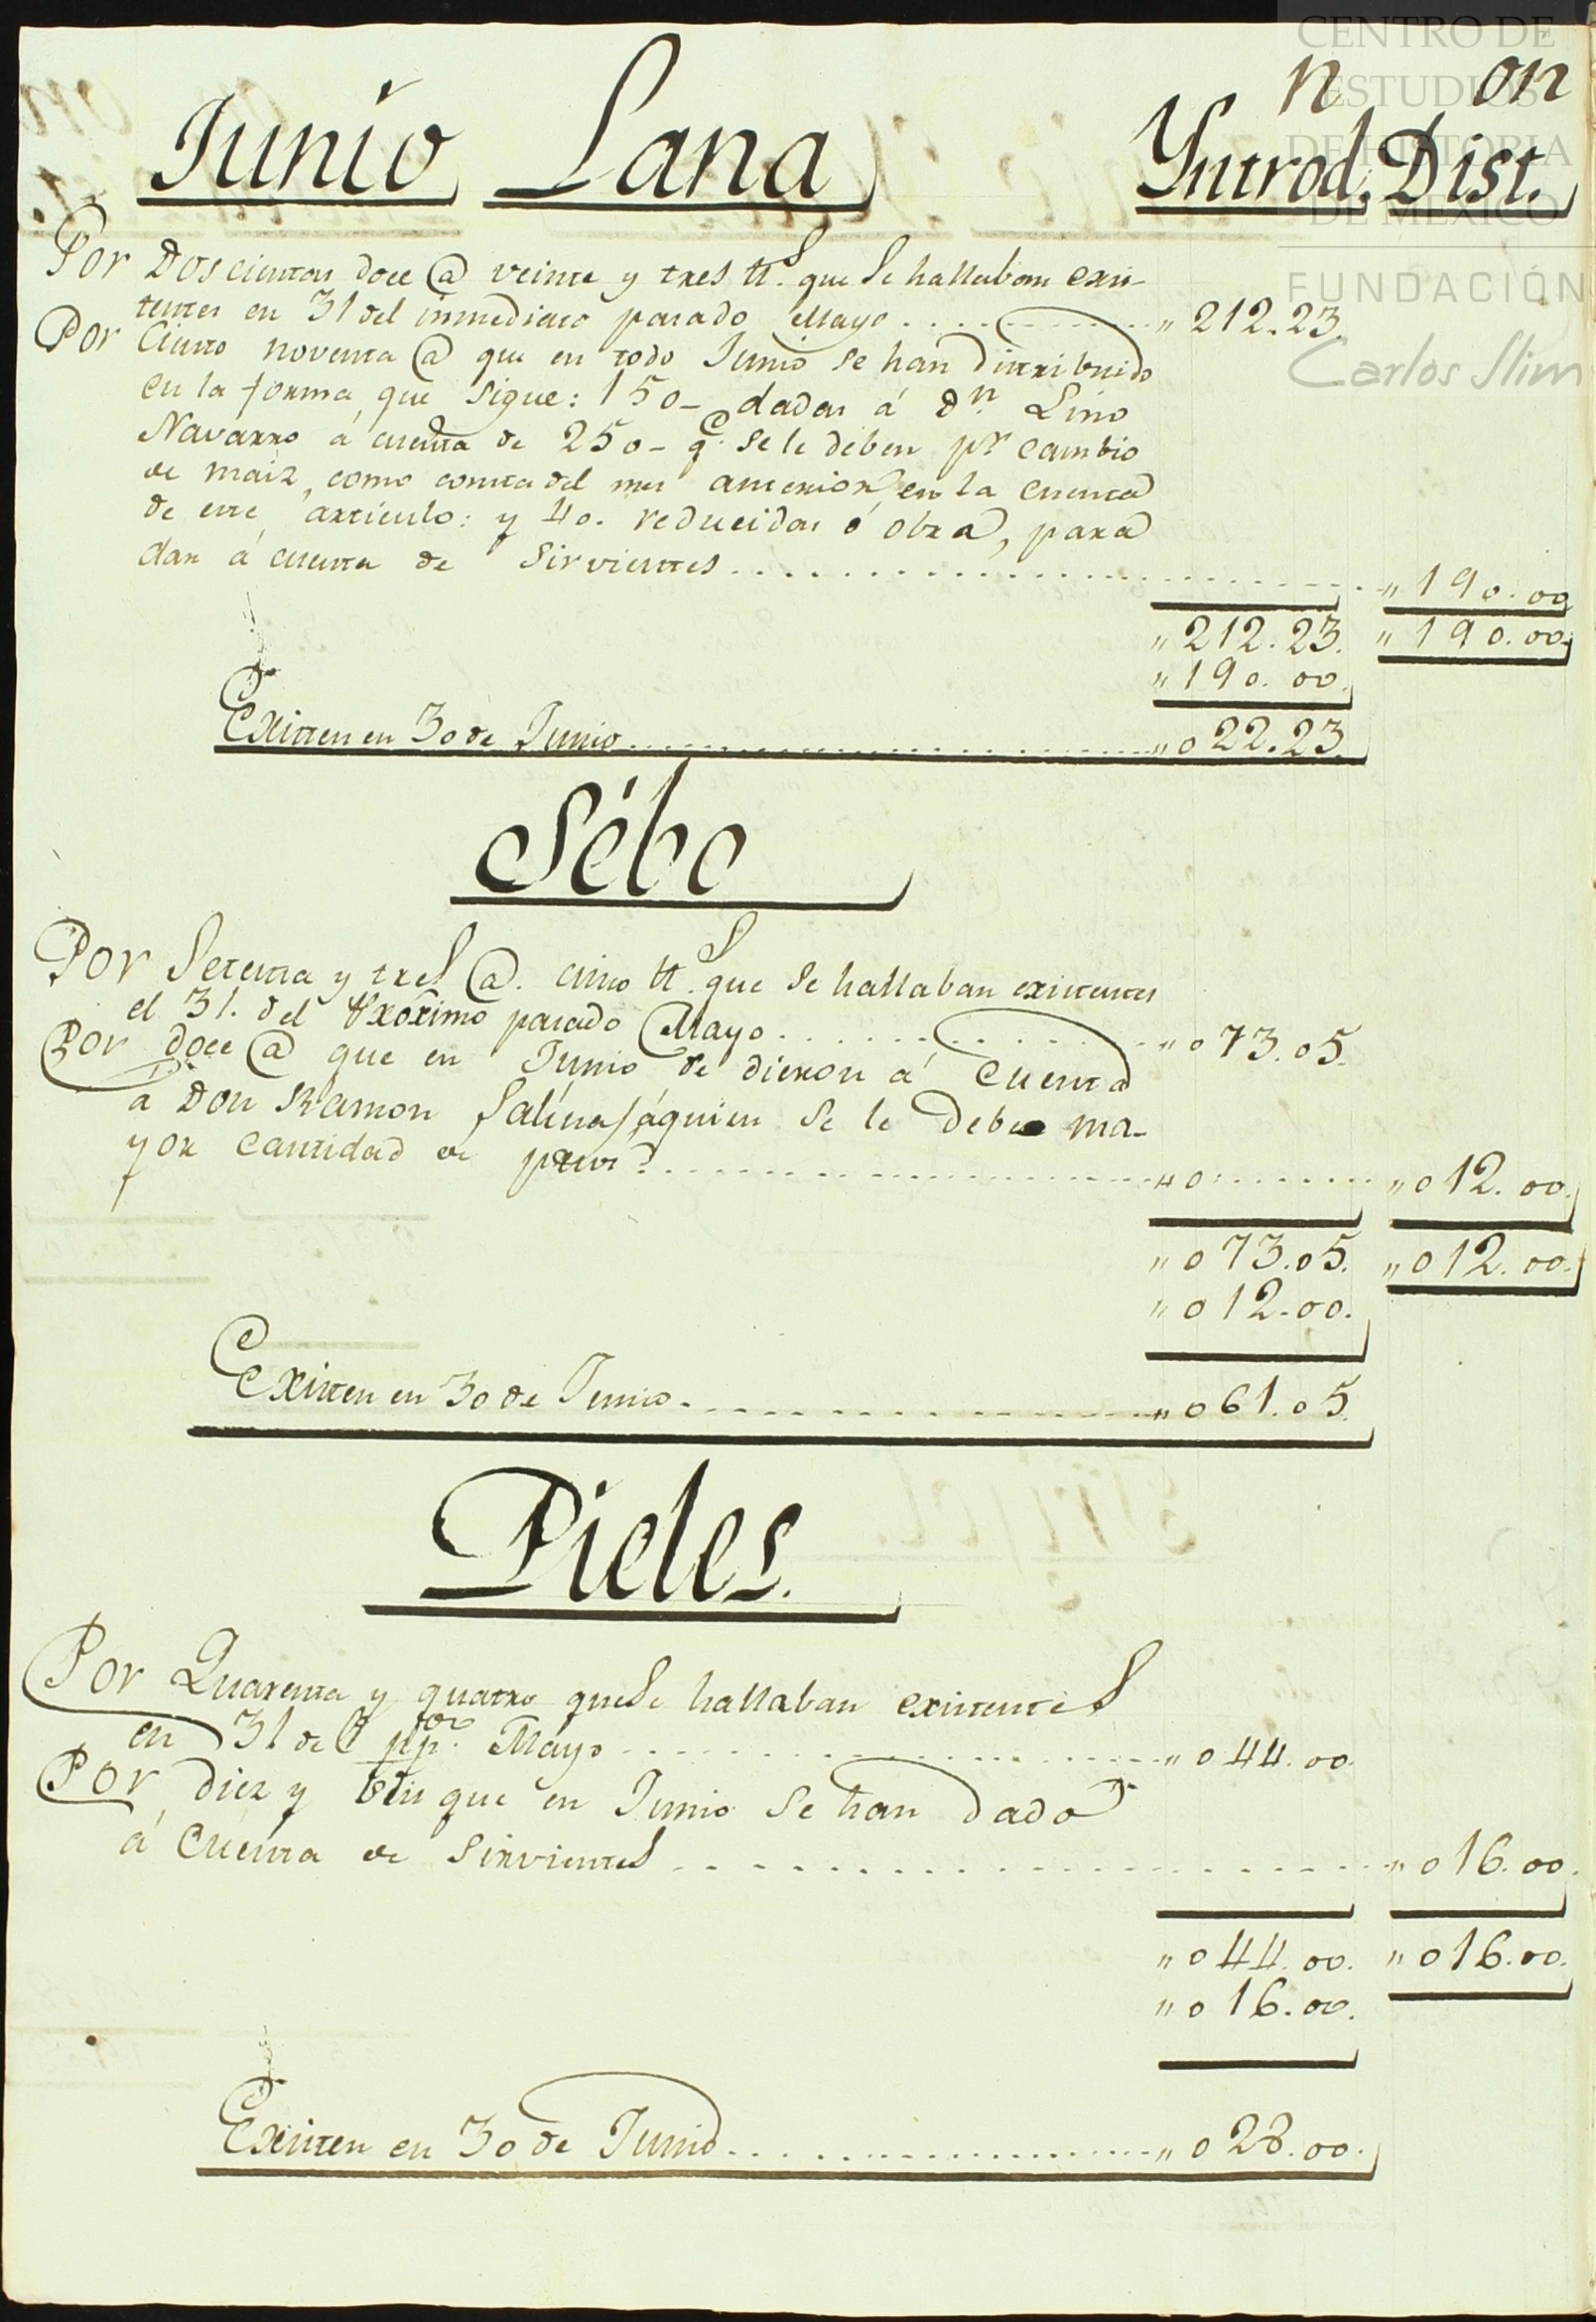 CENTRO DE
ESTUDIOS
DE HISTORIA
DE MEXICO
FUNDACIÓN
Carlos Slim
Junio Lana Yntrod.n Dist.on
Por Doscientas doce @ veinte y tres ℔.s que se hallaban exis-
tentes en 31 del inmediato pasado Mayo . . . . . . . . . . . „ 212.23.
Por Ciento noventa @ que en todo Junio se han distribuido
en la forma que sigue: 150- dadas á Dn. Lino
Navarro á cuenta de 250- q.e se le deben pr cambio
de maiz, como consta del mes anterior en la cuenta
de este artículo: y 40. reducidas á obra, para
dar á cuenta de Sirvientes . . . . . . . . . . . . . . . . „ 190.00
„ 212.23. „ 190.00.
„ 190.00.
Existen en 30 de Junio . . . . . . . . . . . . . . „ 022.23.
Sébo
Por Setenta y tres @. cinco ℔.s que se hallaban existentes
el 31. del Próximo pasado Mayo . . . . . . . . . . . „ 073.05.
Por doce @ que en Junio se dieron á Cuenta
á Don Ramon Salinas, á quien se le debe ma-
yor Cantidad de . . . . . . . . . . . . . . „ 0 . . . . . . „ 012.00.
„ 073.05. „ 012.00.
„ 012.00.
Existen en 30 de Junio . . . . . . . . . . . . . . „ 061.05.
Pieles.
Por Quarenta y quatro que se hallaban existentes
en 31 del pp.do Mayo . . . . . . . . . . . . . . „ 044.00.
Por diez y seis que en Junio se han dado
á Cuenta de Sirvientes . . . . . . . . . . . . . . . . „ 016.00.
„ 044.00. „ 016.00.
„ 016.00.
Existen en 30 de Junio . . . . . . . . . . . . . . „ 028.00.